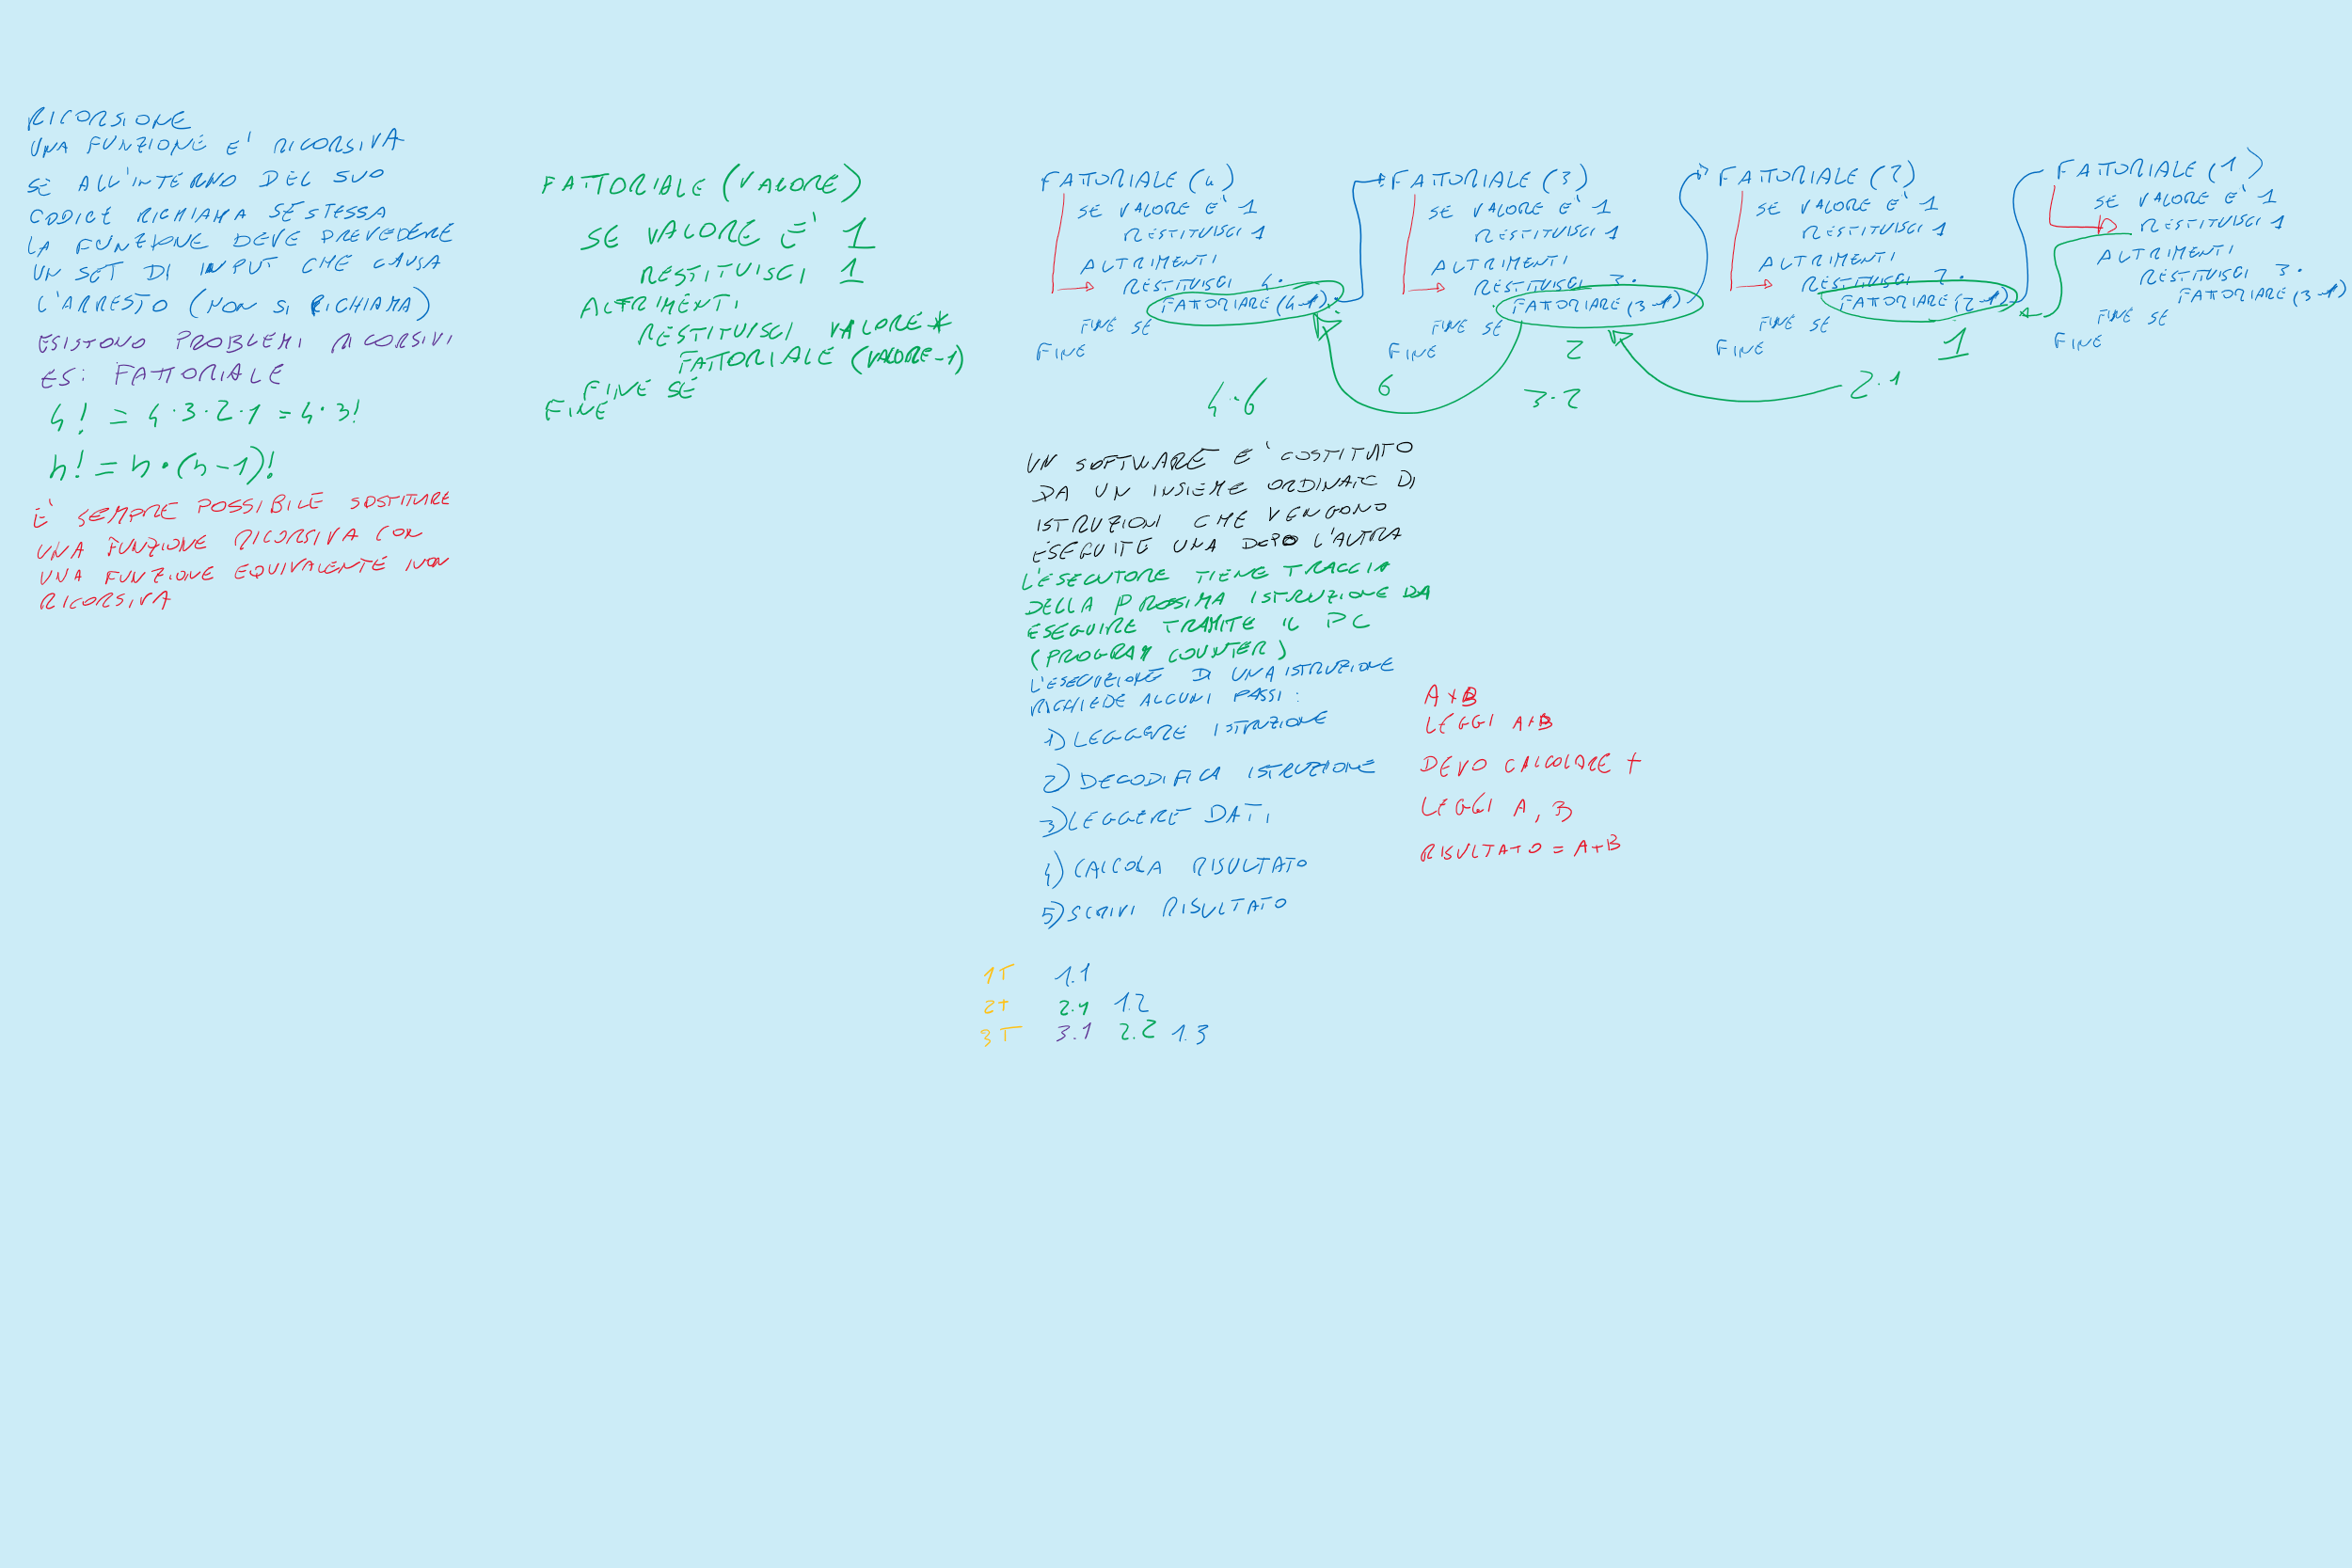 RICORSIONE
UNA FUNZIONE E' RICORSIVA
SE ALL'INTERNO DEL SUO
CODICE RICHIAMA SE STESSA
LA FUNZIONE DEVE PREVEDERE
UN SET DI INPUT CHE CAUSA
L'ARRESTO (NON SI RICHIAMA)
ESISTONO PROBLEMI RICORSIVI
ES: FATTORIALE
4! = 4·3·2·1 = 4·3!
n! = n·(n-1)!
È SEMPRE POSSIBILE SOSTITUIRE
UNA FUNZIONE RICORSIVA CON
UNA FUNZIONE EQUIVALENTE NON
RICORSIVA
FATTORIALE (VALORE)
SE VALORE E' 1
RESTITUISCI 1
ALTRIMENTI
RESTITUISCI VALORE*
FATTORIALE (VALORE-1)
FINE SE
FINE
FATTORIALE (4)
SE VALORE E' 1
RESTITUISCI 1
ALTRIMENTI
RESTITUISCI 4·
FATTORIARE (4-1)
FINE SE
FINE
4·6
FATTORIALE (3)
SE VALORE E' 1
RESTITUISCI 1
ALTRIMENTI
RESTITUISCI 3·
FATTORIARE (3-1)
FINE SE
FINE
2
6
3·2
FATTORIALE (2)
SE VALORE E' 1
RESTITUISCI 1
ALTRIMENTI
RESTITUISCI 2·
FATTORIARE (2-1)
FINE SE
FINE
1
2·1
FATTORIALE (1)
SE VALORE E' 1
RESTITUISCI 1
ALTRIMENTI
RESTITUISCI 3·
FATTORIARE (3-1)
FINE SE
FINE
UN SOFTWARE E' COSTITUITO
DA UN INSIEME ORDINATO DI
ISTRUZIONI CHE VENGONO
ESEGUITE UNA DOPO L'ALTRA
L'ESECUTORE TIENE TRACCIA
DELLA PROSSIMA ISTRUZIONE DA
ESEGUIRE TRAMITE IL PC
(PROGRAM COUNTER)
L'ESECUZIONE DI UNA ISTRUZIONE
RICHIEDE ALCUNI PASSI:
1) LEGGERE ISTRUZIONE
2) DECODIFICA ISTRUZIONE
3) LEGGERE DATI
4) CALCOLA RISULTATO
5) SCRIVI RISULTATO
A+B
LEGGI A+B
DEVO CALCOLARE +
LEGGI A, B
RISULTATO = A+B
1T 1.1
2T 2.1 1.2
3T 3.1 2.2 1.3